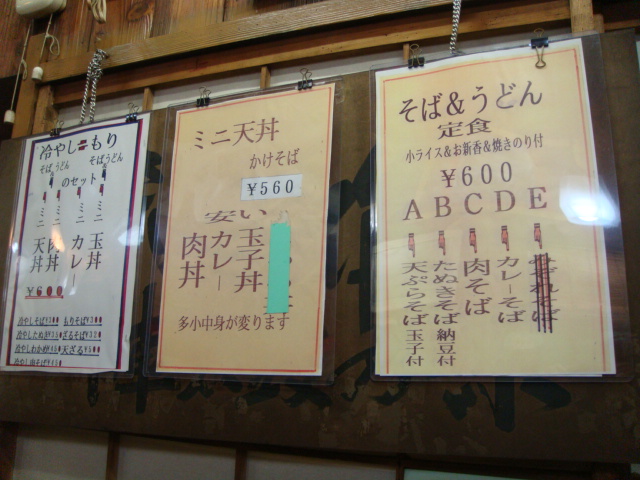 冷やし=もり
そばうどん そばうどん
のセット
ミニ天丼
ミニ肉丼
ミニカレー
ミニ玉丼
¥600
冷やしそば
もりそば
冷やしたぬき
ざるそば
冷やしわかめ
天ざる
ミニ天丼
かけそば
¥560
安い
玉子丼
カレー
肉丼
多小中身が変ります
そば&うどん
定食
小ライス&お新香&焼きのり付
¥600
A B C D E
天ぷらそば玉子付
たぬきそば納豆付
肉そば
カレーそば